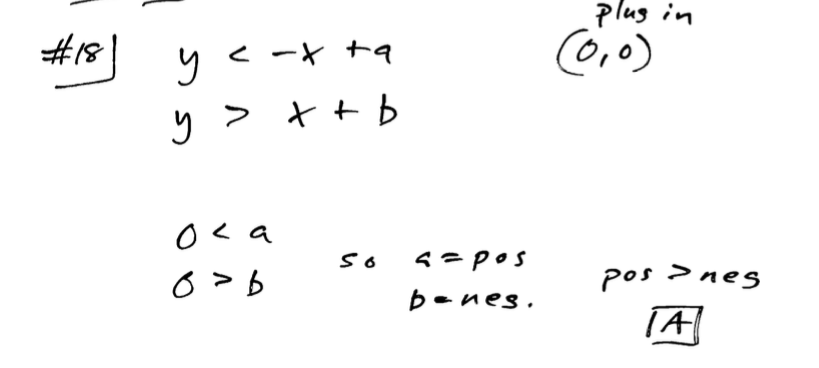 plug in
#18 y < -x + a (0,0)
y > x + b
0 < a
so a = pos
0 > b
pos > neg
b = neg.
A